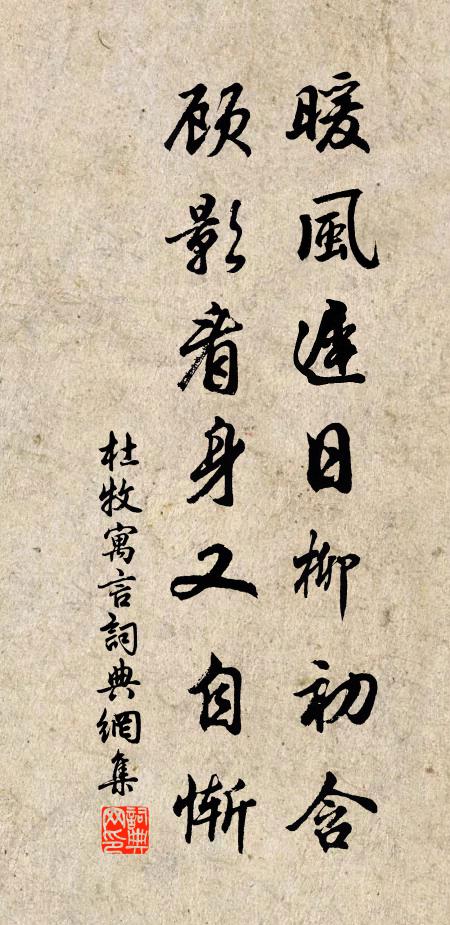 暖風遲日柳初含
顾影看身又自慚
杜牧寓言詞典網集
詞典网印